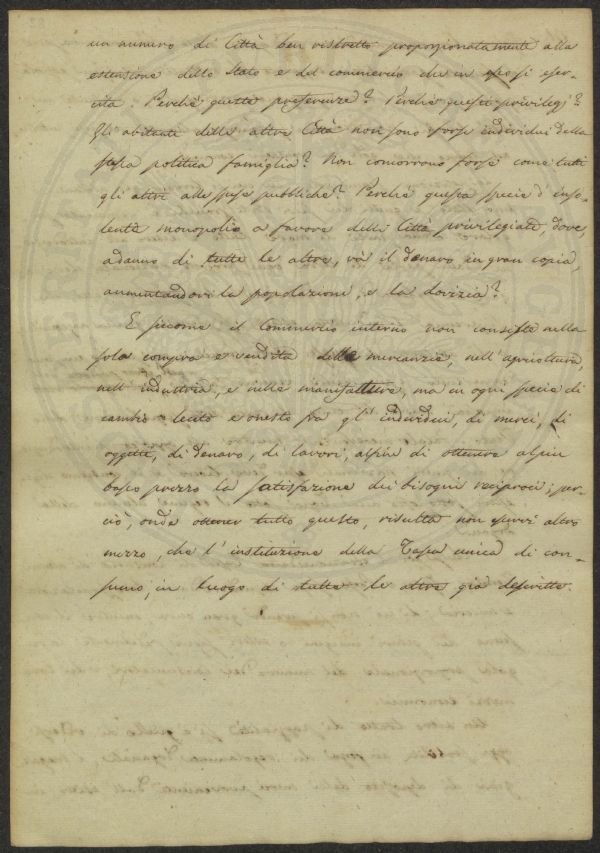 un numero di Città ben ristretto proporzionatamente alla
estensione dello Stato e del commercio che in esso si eser-
cita. Perché queste preferenze? Perché questi privilegj?
Gli abitanti delle altre Città non sono forse individui della
stessa politica famiglia? Non concorrono forse come tutti
gli altri alle spese pubbliche? Perché questa specie d'inso-
lente monopolio a favore delle Città privilegiate, dove,
a danno di tutte le altre, và il denaro in gran copia,
aumentandovi la popolazione, e la dovizia?
E siccome il Commercio interno non consiste nella
sola compra e vendita delle mercanzie, nell'agricoltura,
nell'industria, e nelle manifatture, ma in ogni specie di
cambio lecito e onesto frà gl'individui, di merci, di
oggetti, di denaro, di lavori, alfine di ottenere al più
basso prezzo la satisfazione dei bisogni reciproci; per-
ciò, onde ottener tutto questo, risulta non esservi altro
mezzo, che l'instituzione della Tassa unica di con-
sumo, in luogo di tutte le altre già descritte.